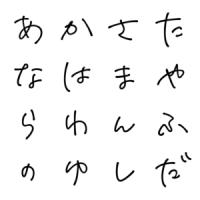 あ か さ た
な は ま や
ら わ ん ふ
の ゆ し だ